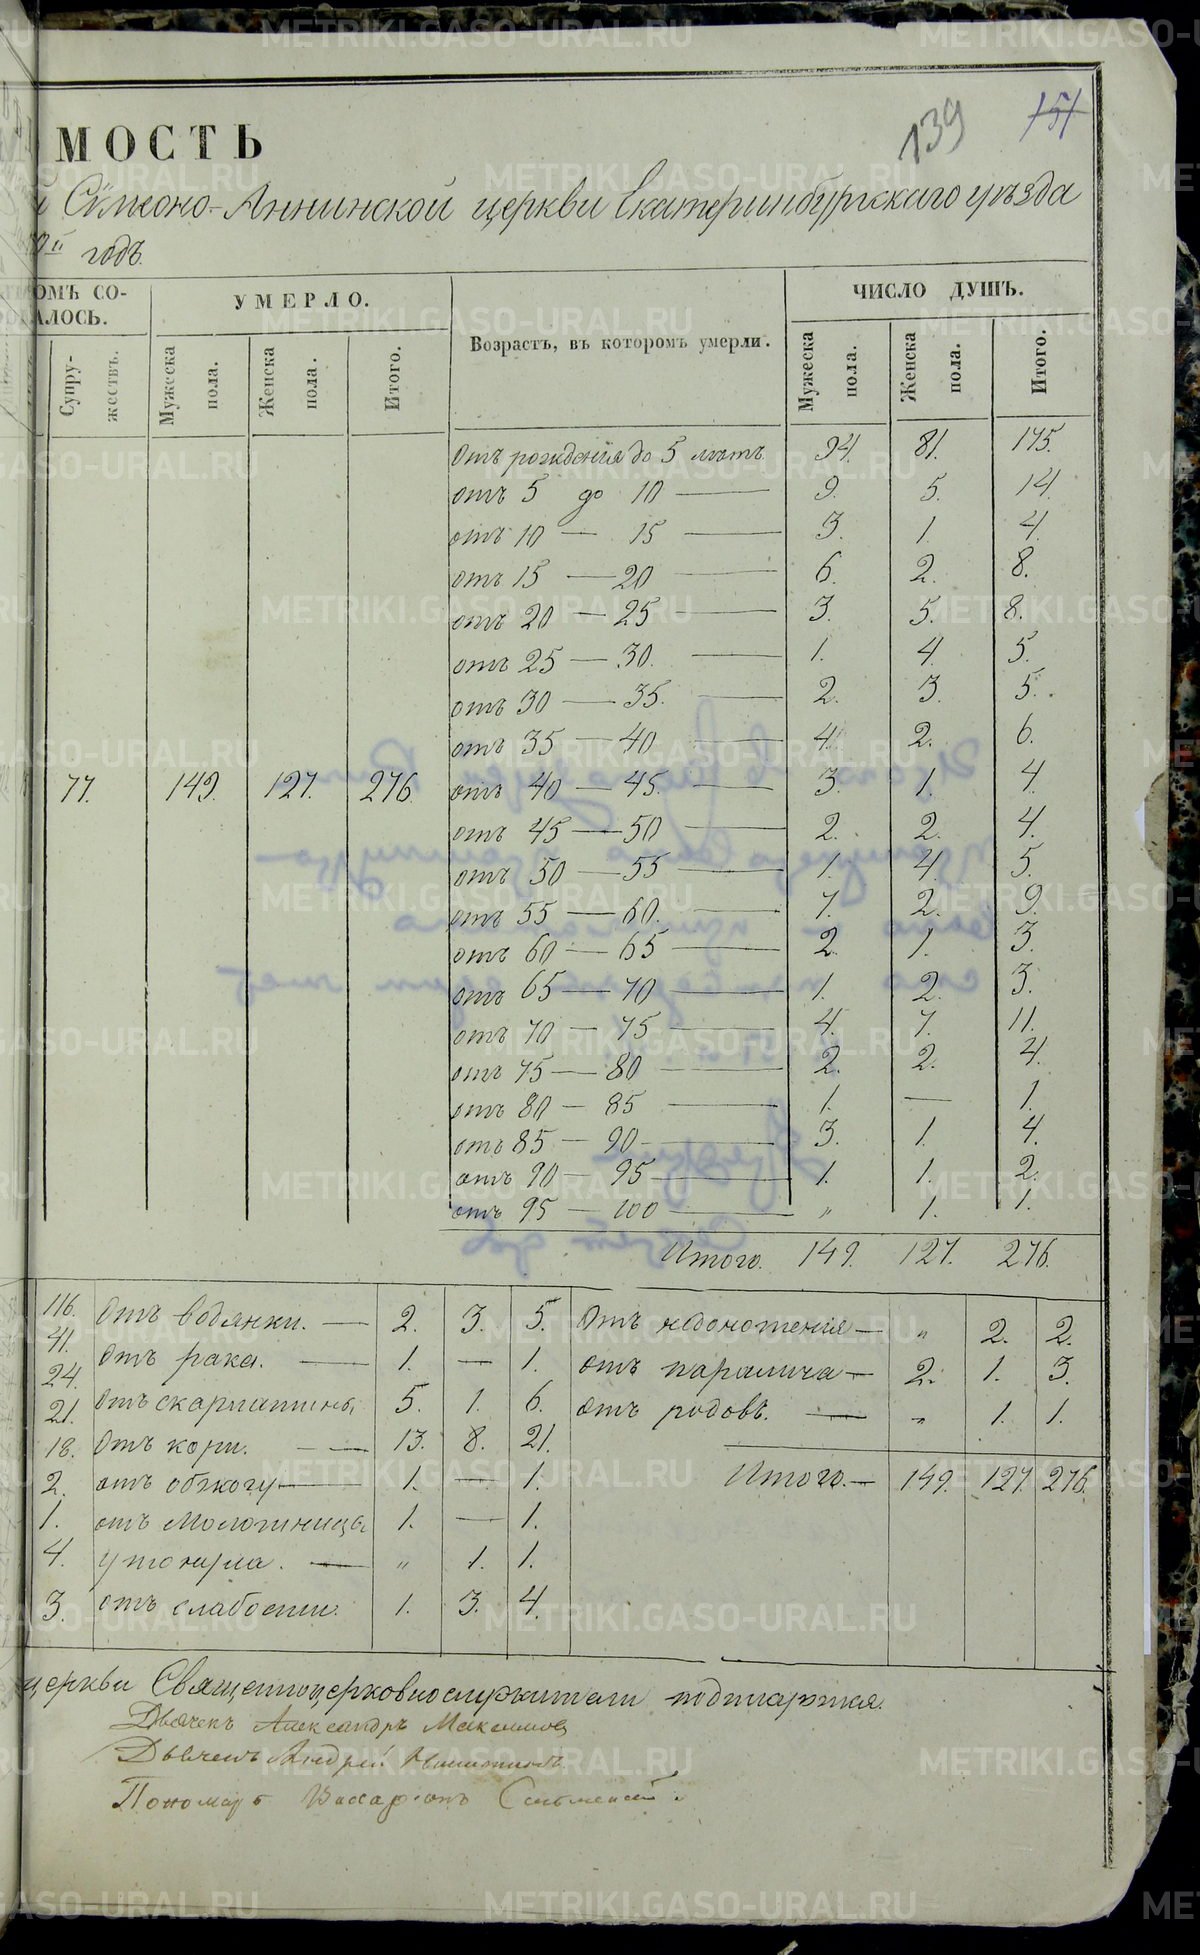 139 151
МОСТЬ
Симеоно-Аннинской церкви Екатеринбургскаго уѣзда
годъ.
ОМЪ СО-
АЛОСЬ.
УМЕРЛО.
Возрастъ, въ которомъ умерли.
ЧИСЛО ДУШЪ.
Супру-
жествъ.
Мужеска
пола.
Женска
пола.
Итого.
Мужеска
пола.
Женска
пола.
Итого.
Отъ рожденія до 5 лѣтъ 94. 81. 175.
отъ 5 до 10 — 9. 5. 14.
отъ 10 — 15 — 3. 1. 4.
отъ 15 — 20 — 6. 2. 8.
отъ 20 — 25 — 3. 5. 8.
отъ 25 — 30. — 1. 4. 5.
отъ 30 — 35. — 2. 3. 5.
отъ 35 — 40 — 4. 2. 6.
77. 149. 127. 276. отъ 40 — 45. — 3. 1. 4.
отъ 45 — 50 — 2. 2. 4.
отъ 50 — 55 — 1. 4. 5.
отъ 55 — 60. — 7. 2. 9.
отъ 60 — 65 — 2. 1. 3.
отъ 65 — 70 — 1. 2. 3.
отъ 70 — 75 — 4. 7. 11.
отъ 75 — 80 — 2. 2. 4.
отъ 80 — 85 — 1. — 1.
отъ 85 — 90 — 3. 1. 4.
отъ 90 — 95 — 1. 1. 2.
отъ 95 — 100 — " 1. 1.
Итого. 149. 127. 276.
116. Отъ водянки. — 2. 3. 5. Отъ недоношенія — " 2. 2.
41. Отъ рака. — 1. — 1. отъ паралича — 2. 1. 3.
24.
21. Отъ скарлатины 5. 1. 6. отъ родовъ. — " 1. 1.
18. Отъ кори. — 13. 8. 21.
2. отъ обжогу — 1. — 1. Итого. — 149. 127. 276.
1. отъ молошницы 1. — 1.
4. утонула. — " 1. 1.
3. отъ слабости. 1. 3. 4.
церкви Священноцерковнослужители
Дьячекъ Александръ Максимовъ
Дьячекъ Андрей
Пономарь
METRIKI.GASO-URAL.RU